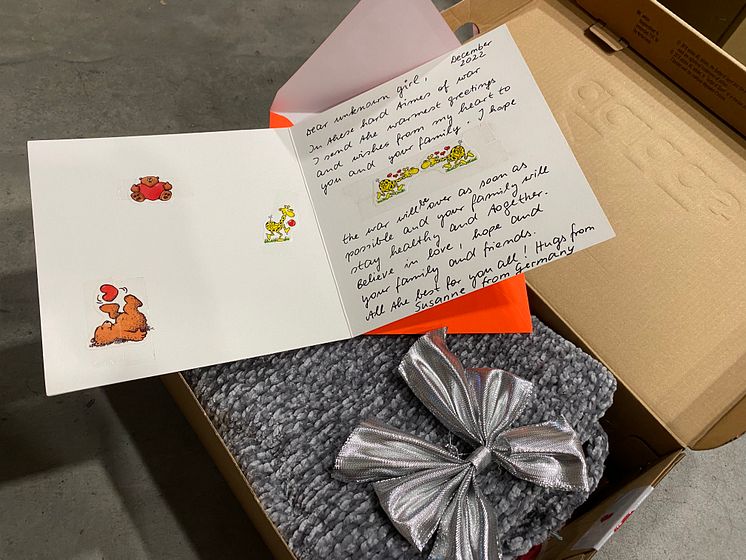 December
2022
Dear unknown girl,
In these hard times of war
I send the warmest greetings
and wishes from my heart to
you and your family. I hope
the war will be over as soon as
possible and your family will
stay healthy and together.
Believe in love, hope and
your family and friends.
All the best for you all! Hugs from
Susanne from Germany
adidas